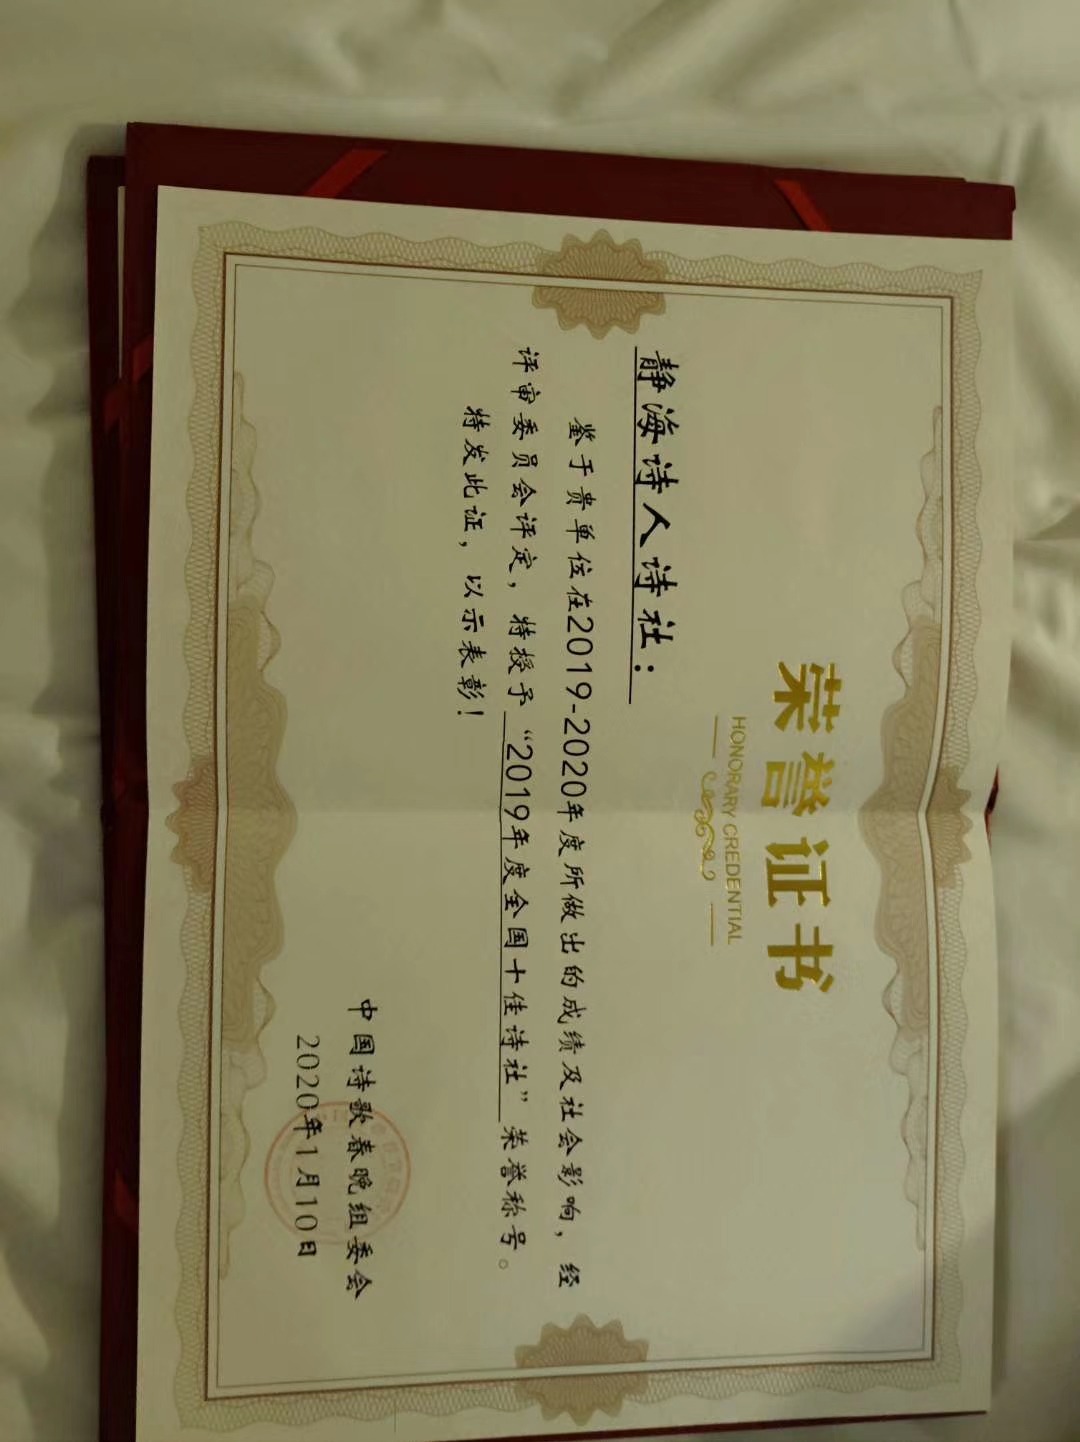 荣誉证书
HONORARY CREDENTIAL
静海诗人诗社：
鉴于贵单位在2019-2020年度所做出的成绩及社会影响，经
评审委员会评定，特授予“2019年度全国十佳诗社”荣誉称号。
特发此证，以示表彰！
中国诗歌春晚组委会
2020年1月10日